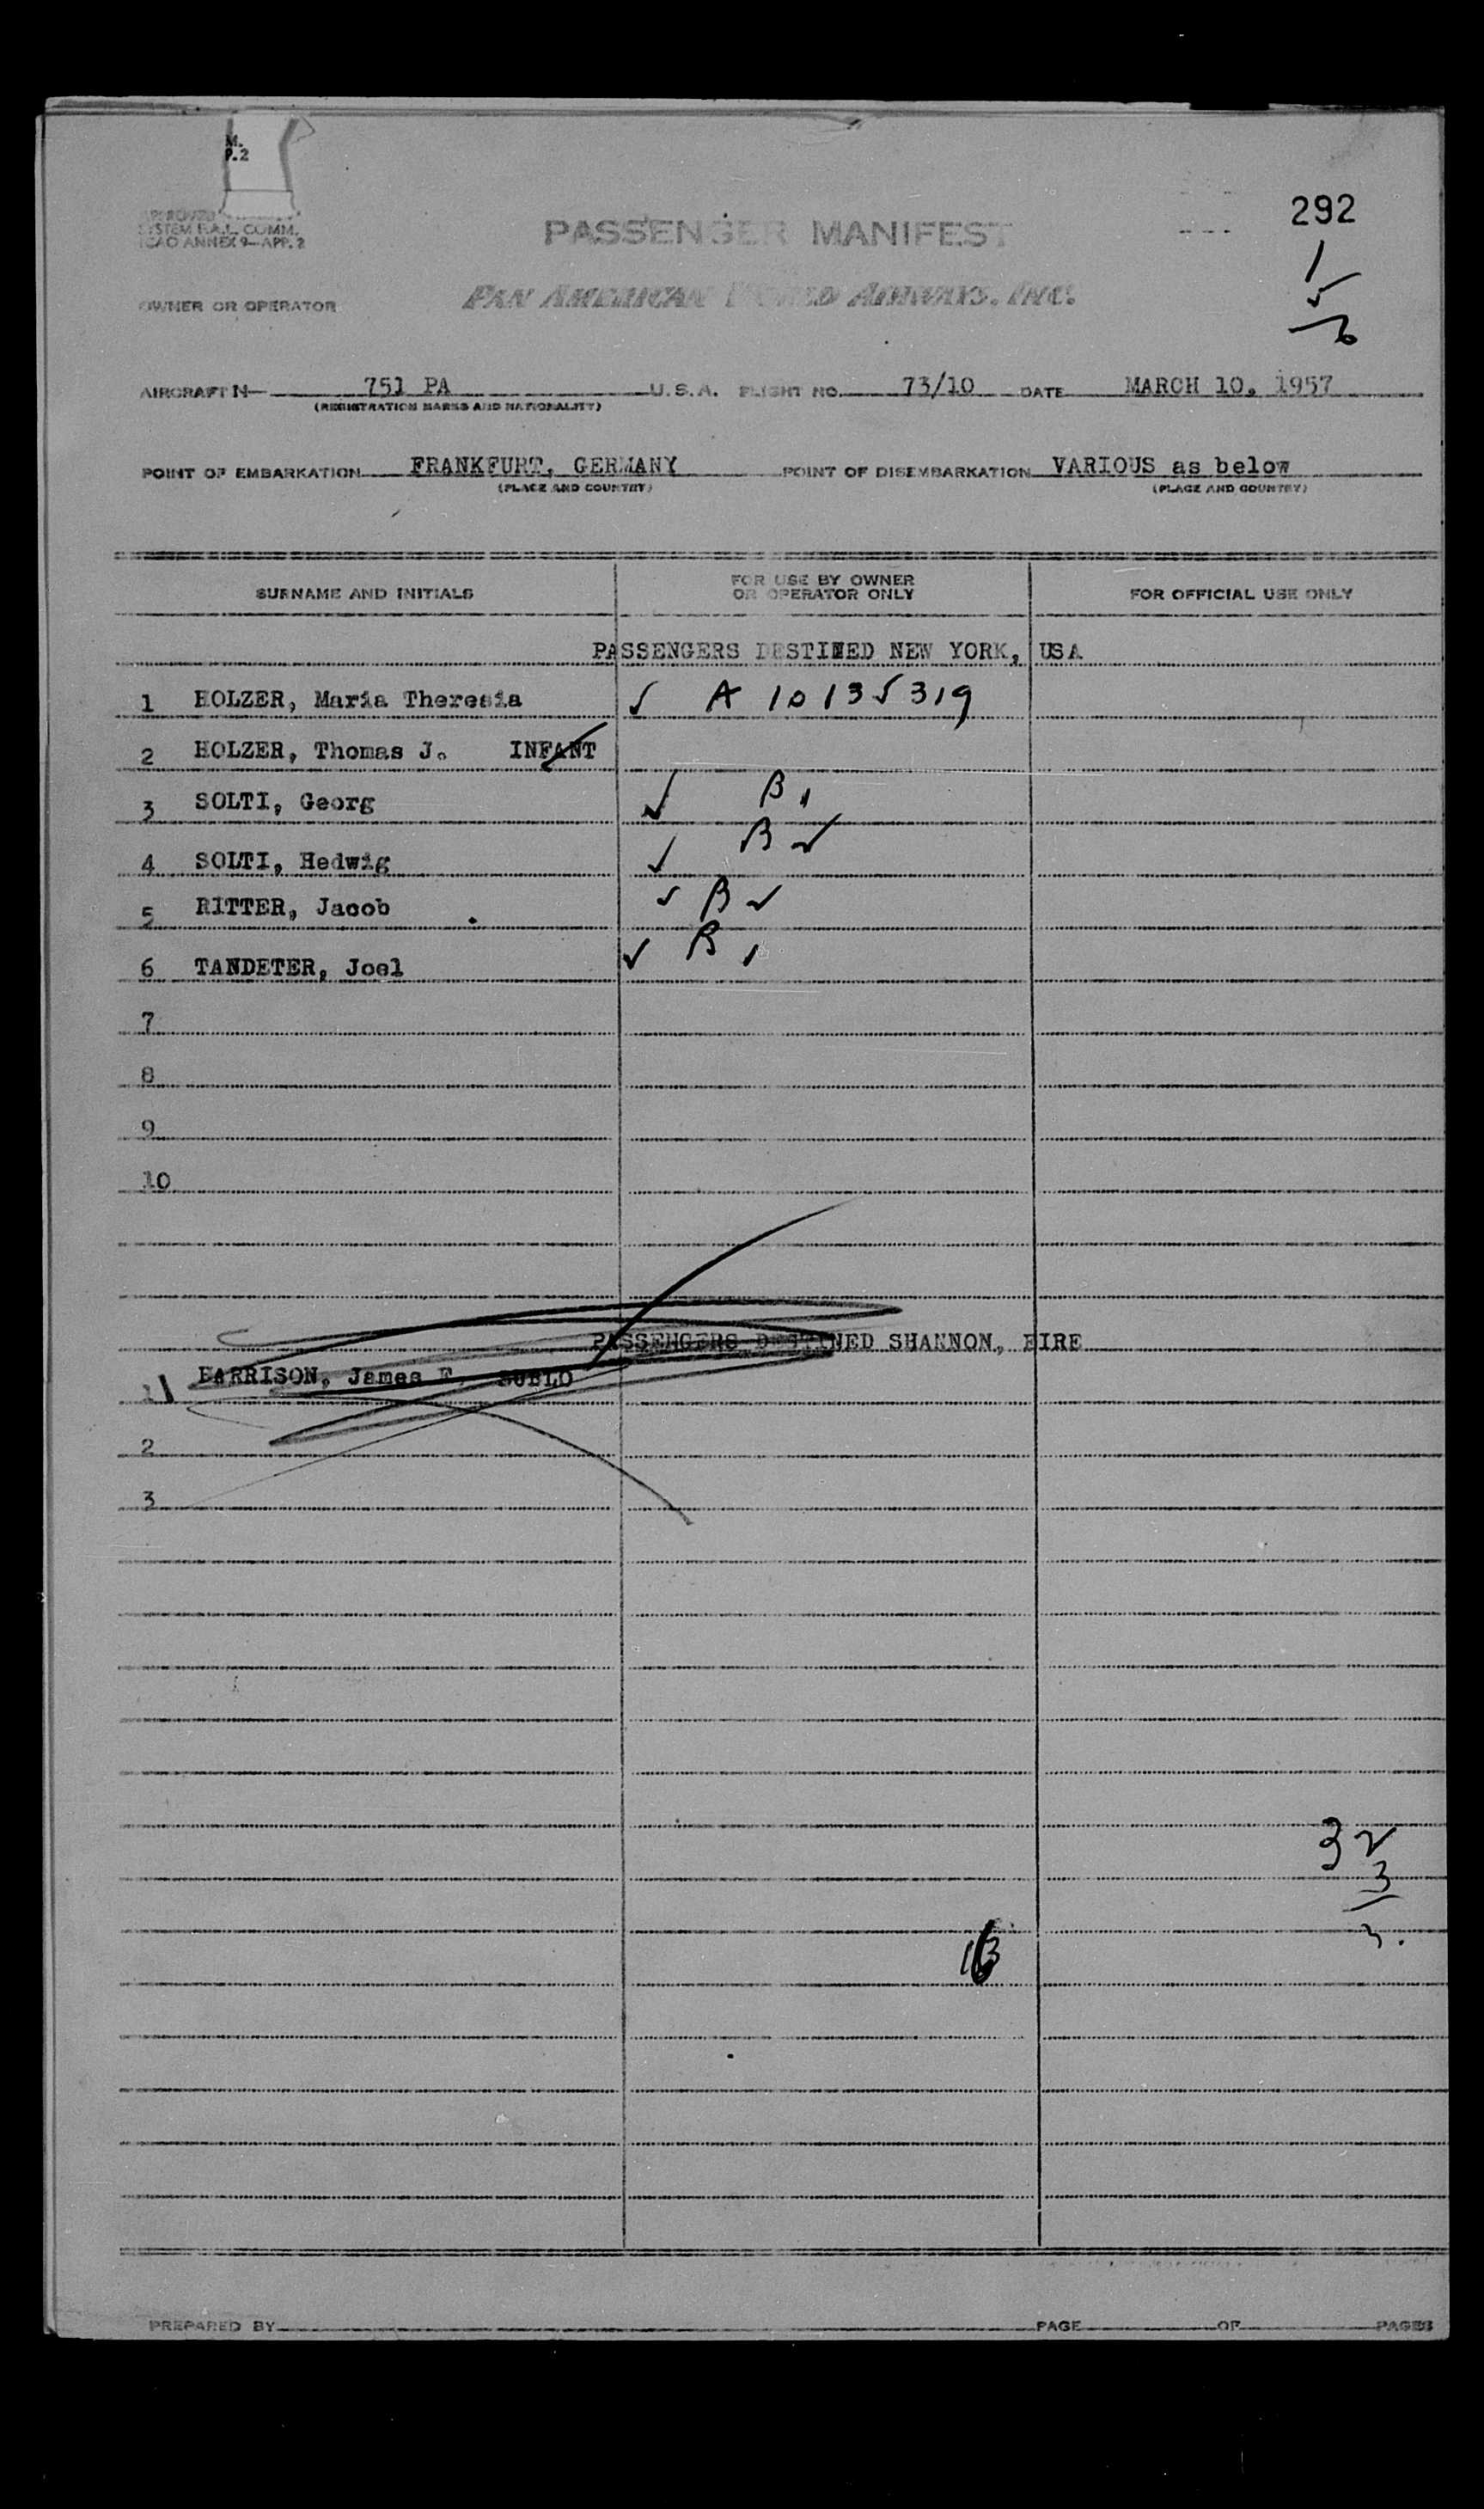 M.
P.2
292
APPROVED
SYSTEM F.A.L. COMM.
ICAO ANNEX 9—APP. 2
PASSENGER MANIFEST
1
5
6
OWNER OR OPERATOR
PAN AMERICAN WORLD AIRWAYS, INC.
AIRCRAFT N— 751 PA U.S.A. FLIGHT NO. 73/10 DATE MARCH 10, 1957
(REGISTRATION MARKS AND NATIONALITY)
POINT OF EMBARKATION FRANKFURT, GERMANY POINT OF DISEMBARKATION VARIOUS as below
(PLACE AND COUNTRY) (PLACE AND COUNTRY)
SURNAME AND INITIALS FOR USE BY OWNER OR OPERATOR ONLY FOR OFFICIAL USE ONLY
PASSENGERS DESTINED NEW YORK, USA
1 HOLZER, Maria Theresia ✓ A 10135319
2 HOLZER, Thomas J. INFANT
3 SOLTI, Georg ✓ B1
4 SOLTI, Hedwig ✓ B2
5 RITTER, Jacob ✓ B2
6 TANDETER, Joel ✓ B1
7
8
9
10
PASSENGERS DESTINED SHANNON, EIRE
1 HARRISON, James F.
2
3
32
3
PREPARED BY PAGE OF PAGES